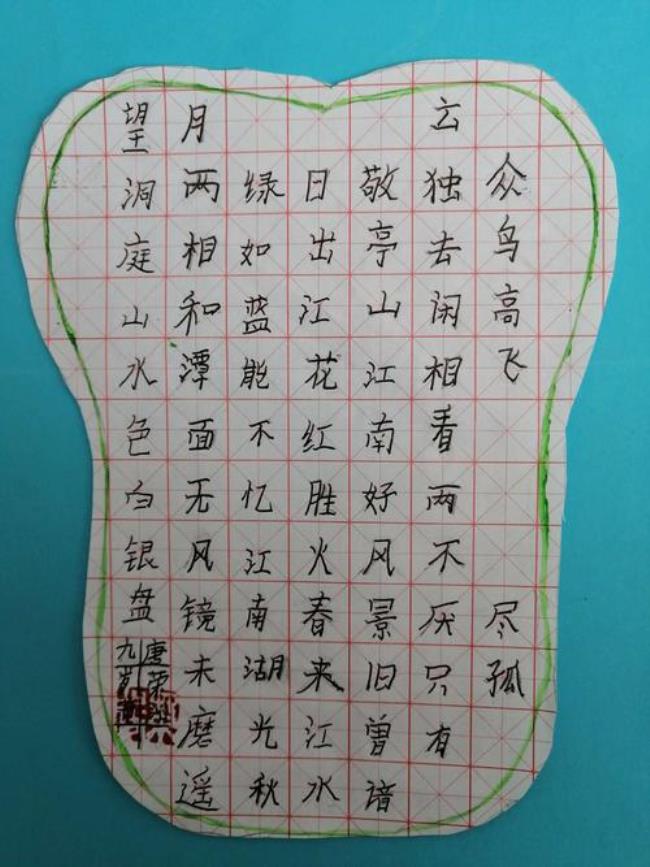 众鸟高飞尽孤
云独去闲相看两不厌只有
敬亭山江南好风景旧曾谙
日出江花红胜火春来江水
绿如蓝能不忆江南湖光秋
月两相和潭面无风镜未磨遥
望洞庭山水色白银盘
唐荣
九岁